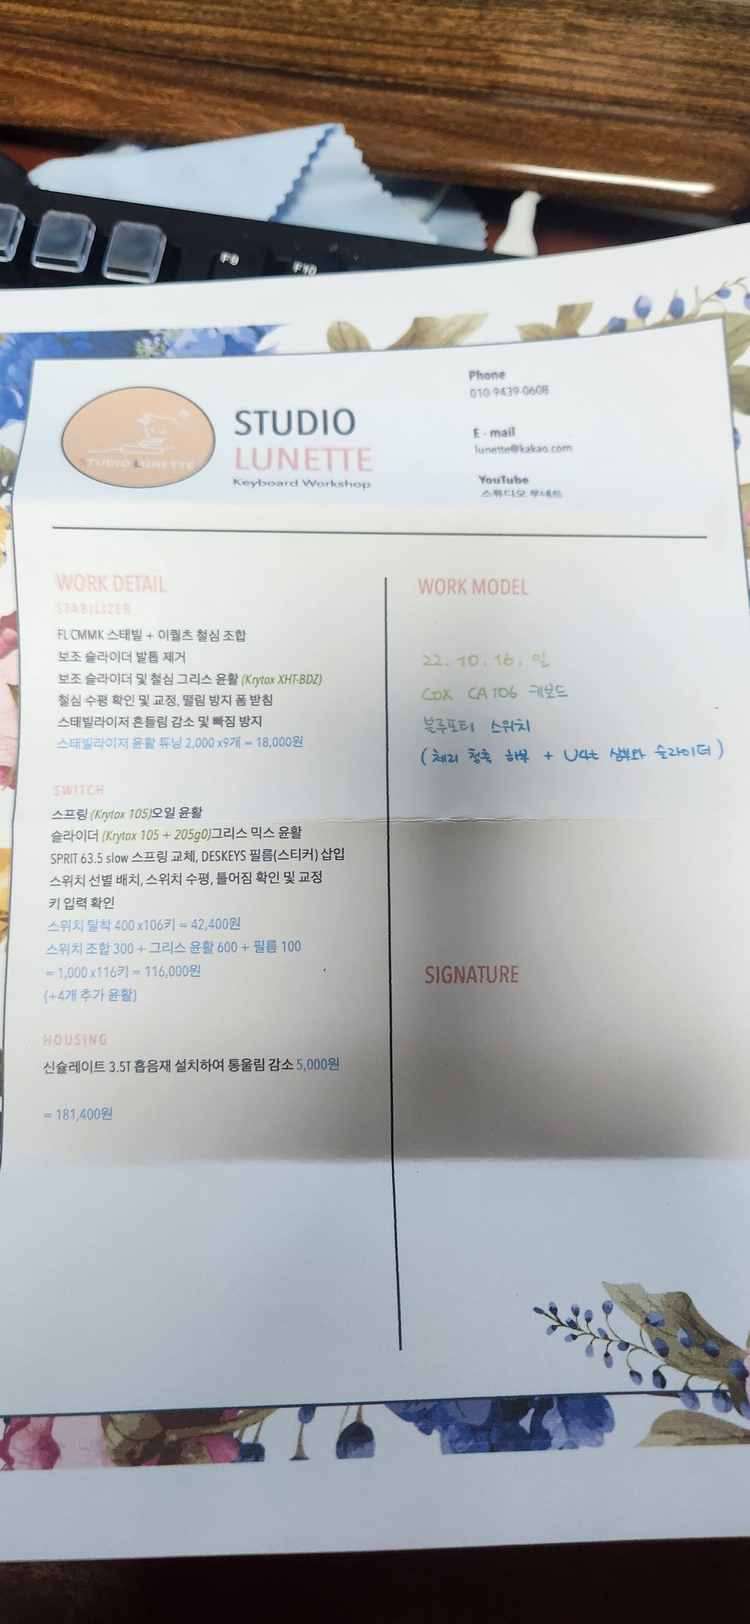 F9
F10
STUDIO LUNETTE
STUDIO
LUNETTE
Keyboard Workshop
Phone
010-9439-0608
E - mail
lunette@kakao.com
YouTube
스튜디오 루네트
WORK DETAIL
STABILIZER
FL CMMK 스테빌 + 이퀄츠 철심 조합
보조 슬라이더 발톱 제거
보조 슬라이더 및 철심 그리스 윤활 (Krytox XHT-BDZ)
철심 수평 확인 및 교정, 떨림 방지 폼 받침
스테빌라이저 흔들림 감소 및 빠짐 방지
스테빌라이저 윤활 튜닝 2,000 x9개 = 18,000원
SWITCH
스프링 (Krytox 105)오일 윤활
슬라이더 (Krytox 105 + 205g0)그리스 믹스 윤활
SPRIT 63.5 slow 스프링 교체, DESKEYS 필름(스티커) 삽입
스위치 선별 배치, 스위치 수평, 틀어짐 확인 및 교정
키 입력 확인
스위치 탈착 400 x106키 = 42,400원
스위치 조합 300 + 그리스 윤활 600 + 필름 100
= 1,000 x116키 = 116,000원
(+4개 추가 윤활)
HOUSING
신슐레이트 3.5T 흡음재 설치하여 통울림 감소 5,000원
= 181,400원
WORK MODEL
22. 10. 16. 일
COX CA106 키보드
블루포터 스위치
(체리 청축 하부 + U4t 상부와 슬라이더)
SIGNATURE